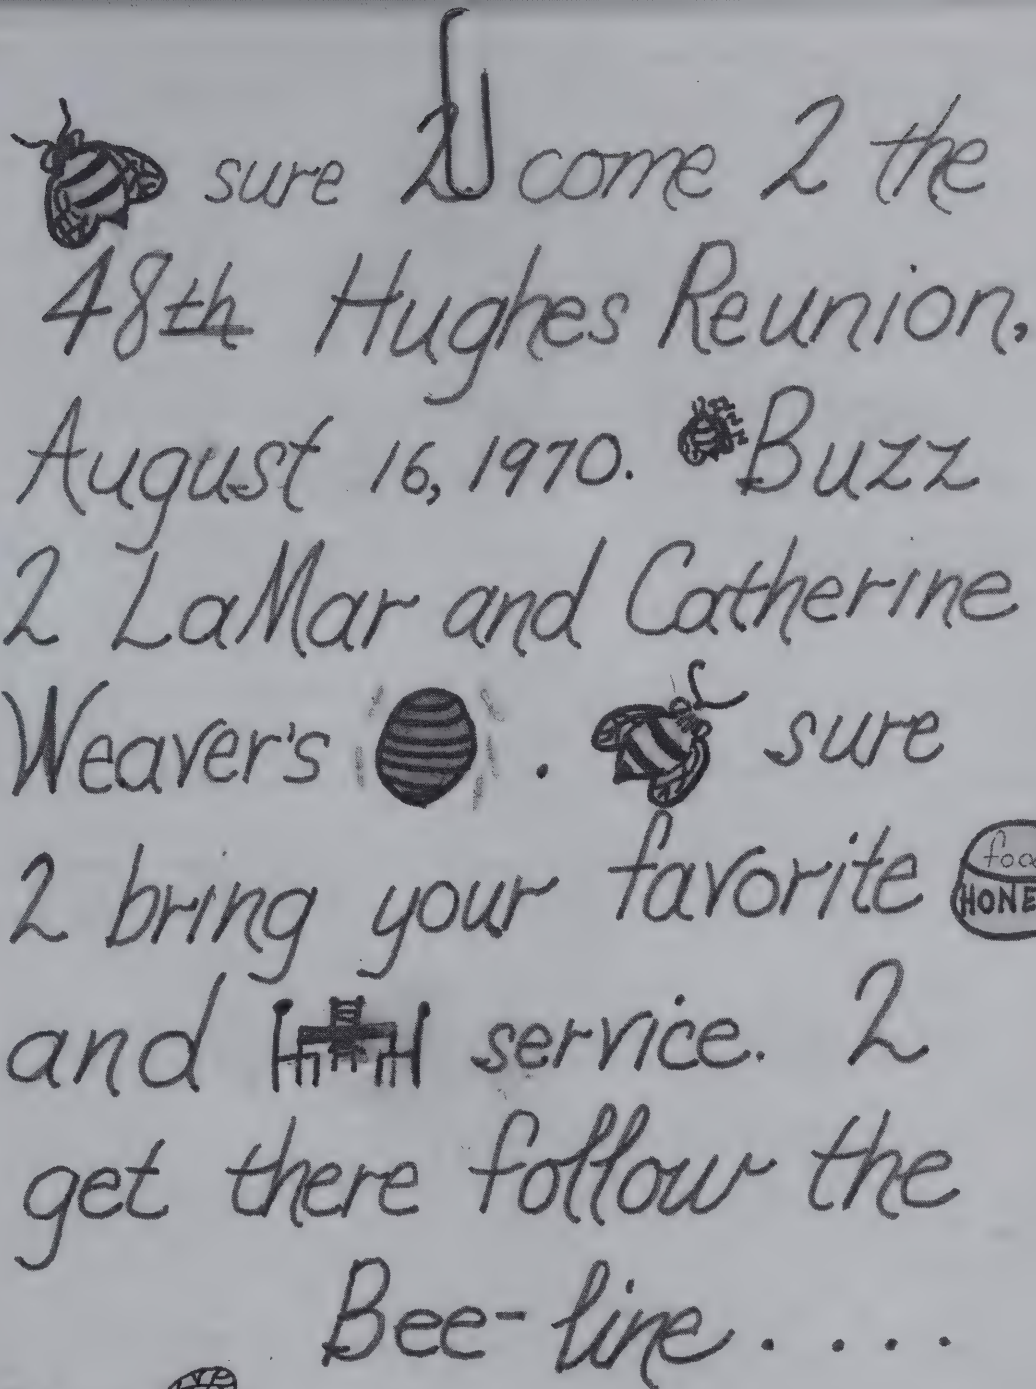 sure 2 come 2 the
48th Hughes Reunion,
August 16, 1970. Buzz
2 LaMar and Catherine
Weaver's . sure
2 bring your favorite
and service. 2
get there follow the
Bee-line....